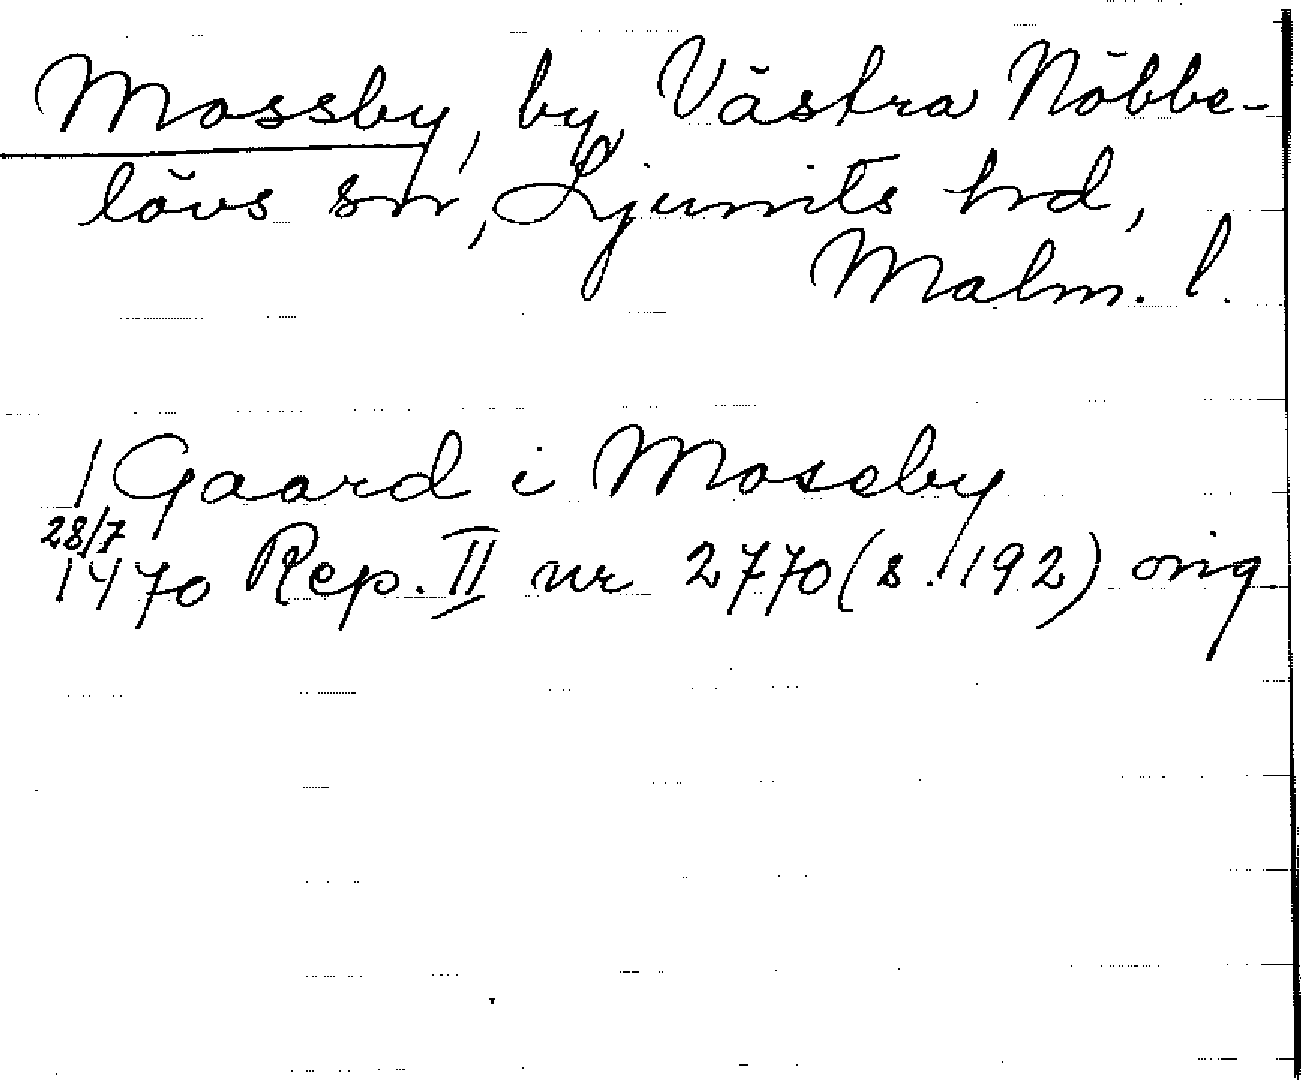 Mossby, by, Västra Nöbbe-
lövs sn, Ljunits hrd,
Malm. l.
1 Gaard i Moseby
28/7
1470 Rep. II nr 2770 (s. 192) orig